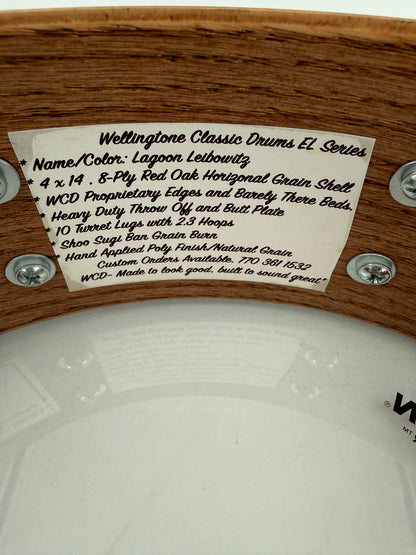 Wellingtone Classic Drums EL Series
* Name/Color: Lagoon Leibowitz
* 4 x 14 . 8-Ply Red Oak Horizonal Grain Shell
* WCD Proprietary Edges and Barely There Beds.
* Heavy Duty Throw Off and Butt Plate
* 10 Turret Lugs with 2.3 Hoops
* Shoo Sugi Ban Grain Burn
* Hand Applied Poly Finish/Natural Grain
Custom Orders Available. 770 361 1532
WCD- Made to look good, built to sound great"